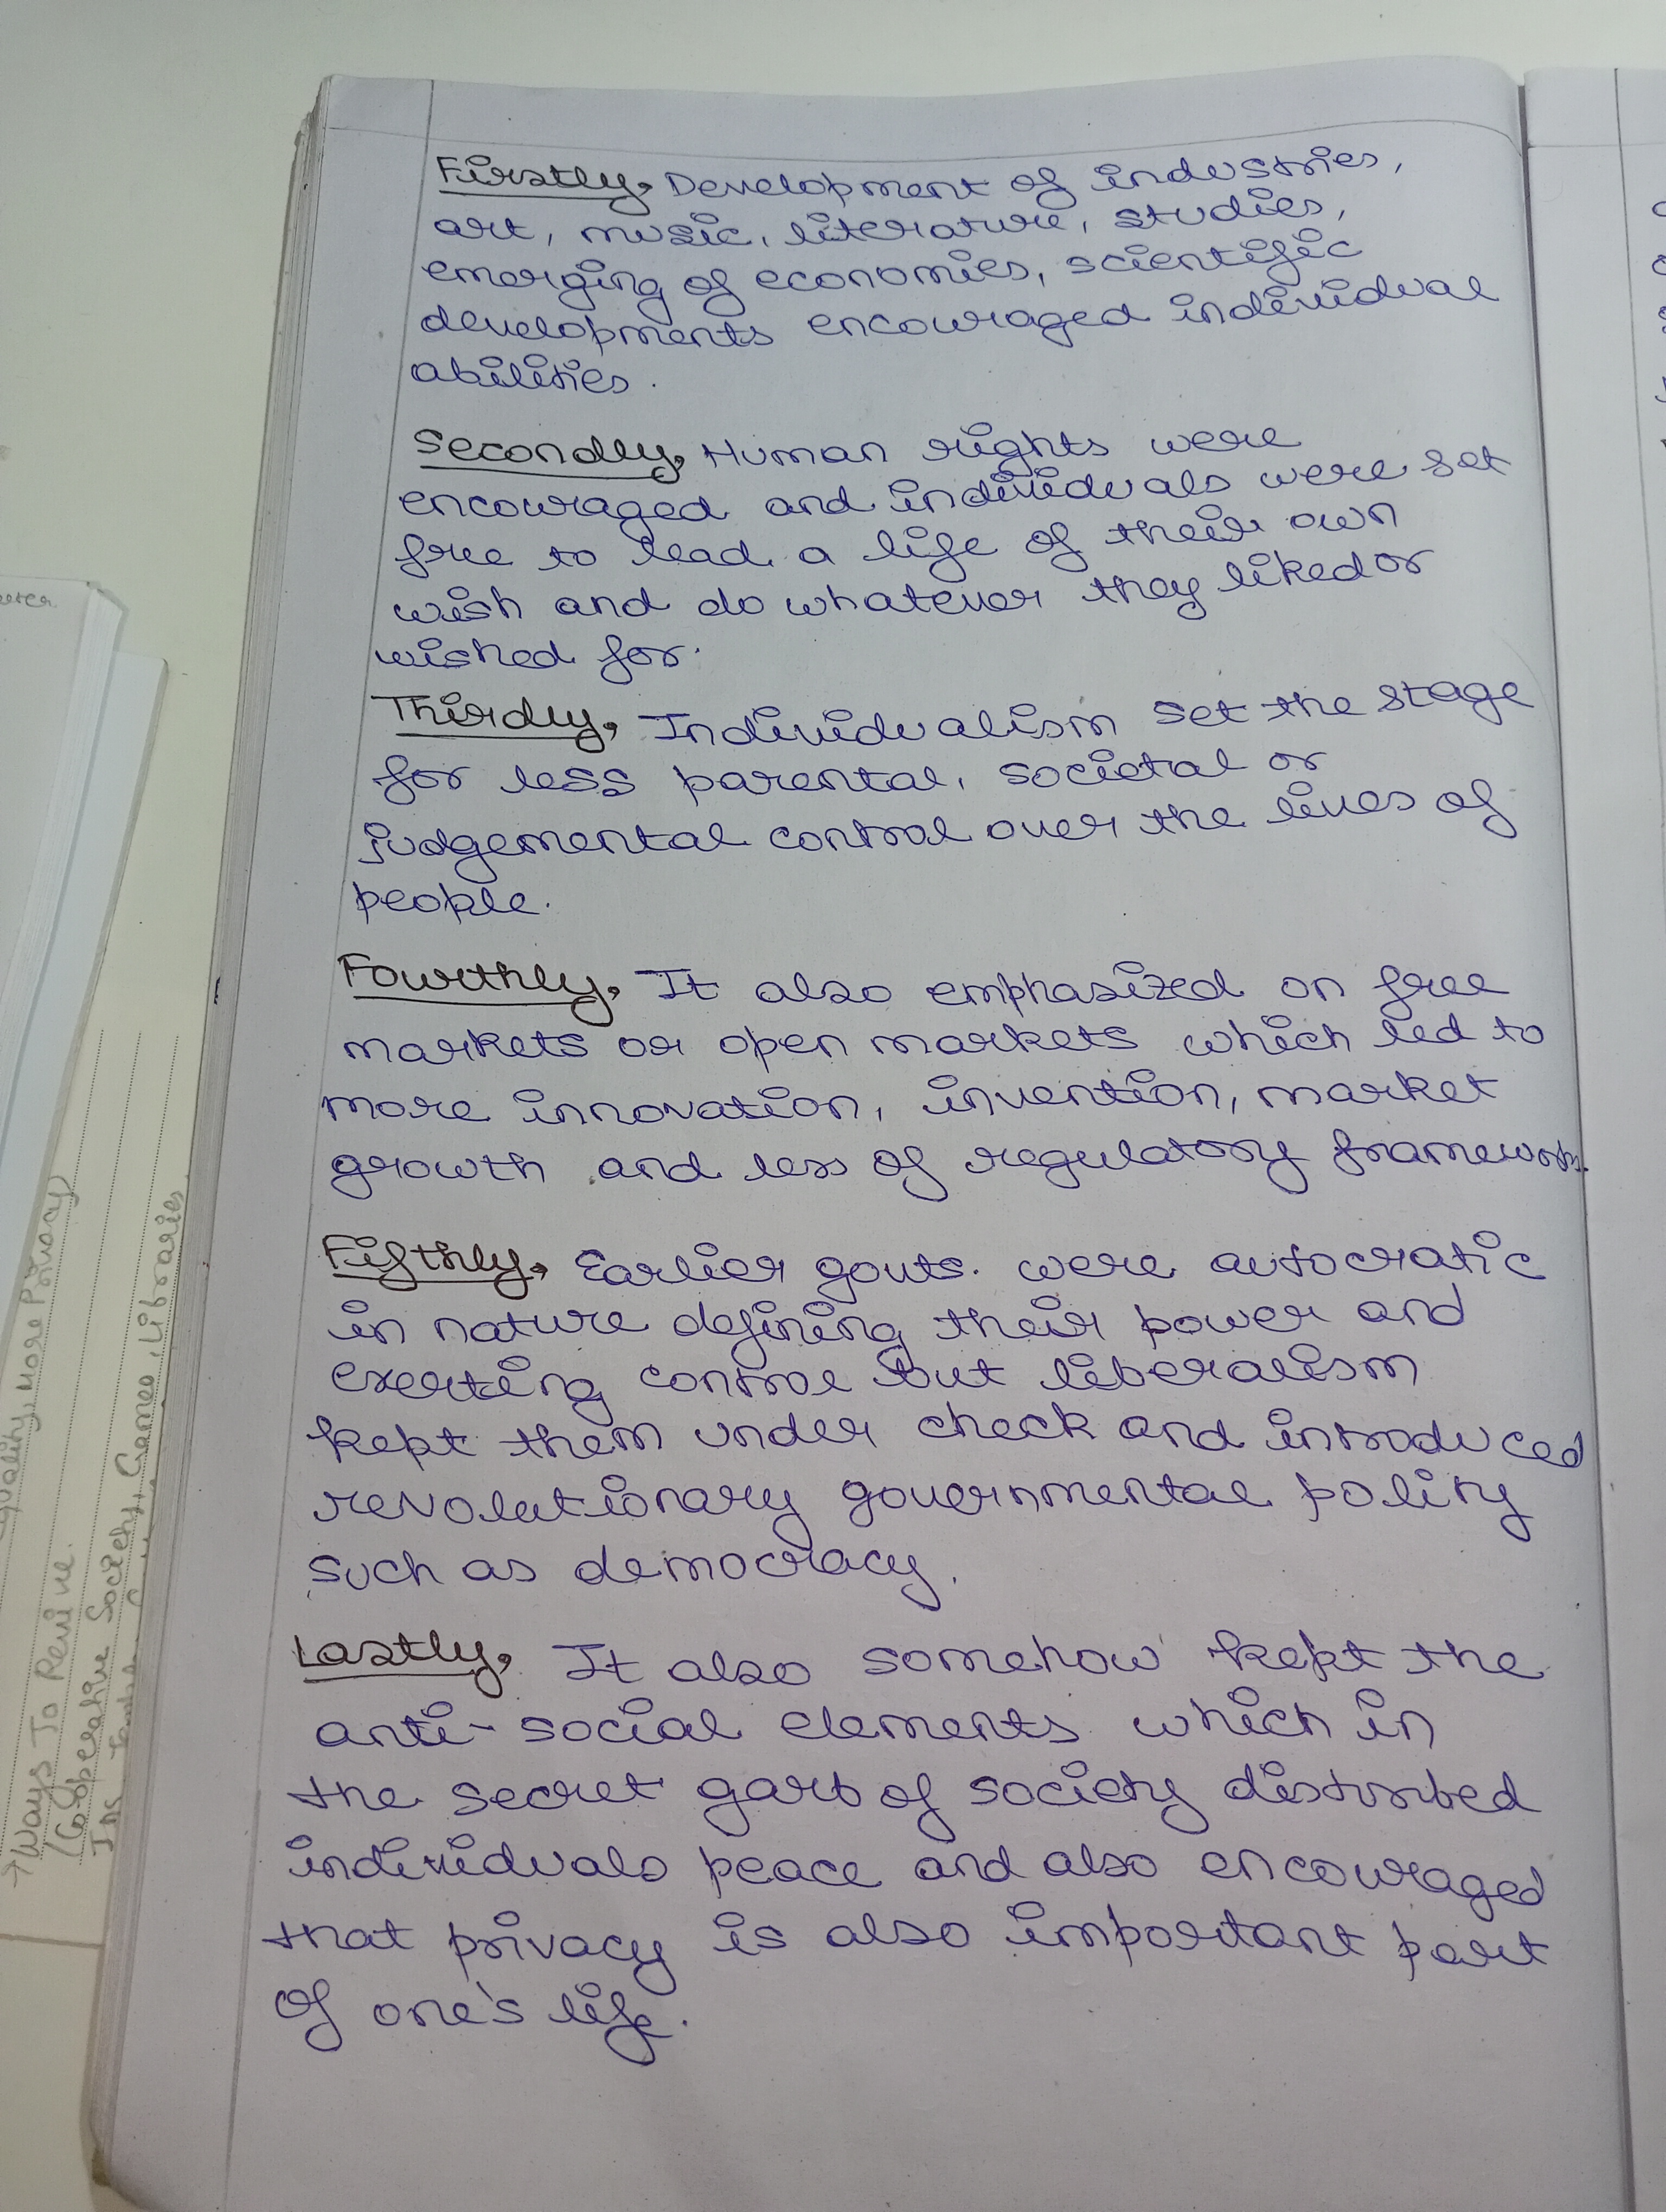 Firstly, Development of industries,
art, music, literature, studies,
emerging of economies, scientific
developments encouraged individual
abilities.
Secondly, Human rights were
encouraged and individuals were set
free to lead a life of their own
wish and do whatever they liked or
wished for.
Thirdly, Individualism set the stage
for less parental, societal or
judgemental control over the lives of
people.
Fourthly, It also emphasized on free
markets or open markets which led to
more innovation, invention, market
growth and less of regulatory framework.
Fifthly, Earlier govts. were autocratic
in nature defining their power and
exerting control but liberalism
kept them under check and introduced
revolutionary governmental polity
such as democracy.
Lastly, It also somehow kept the
anti-social elements which in
the secret garb of society disturbed
individuals peace and also encouraged
that privacy is also important part
of one's life.
quality, More Privacy
→ Ways To Revive.
(Co-operative Society, Games, Libraries